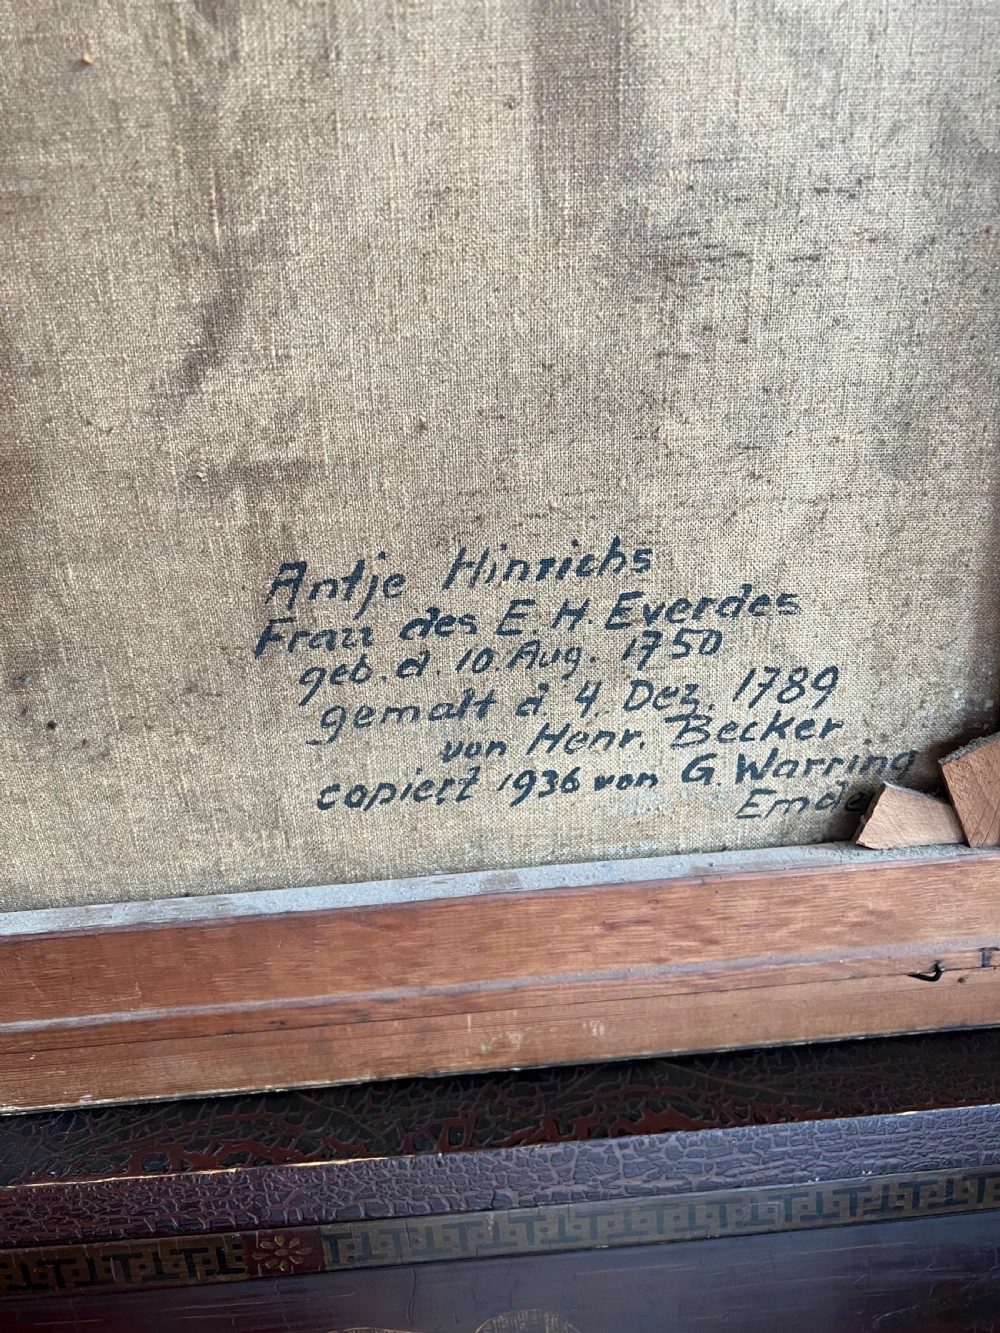 Antje Hinrichs
Frau des E. H. Everdes
geb. d. 10. Aug. 1750
gemalt d. 4. Dez. 1789
von Henr. Becker
copiert 1936 von G. Warring
Emde